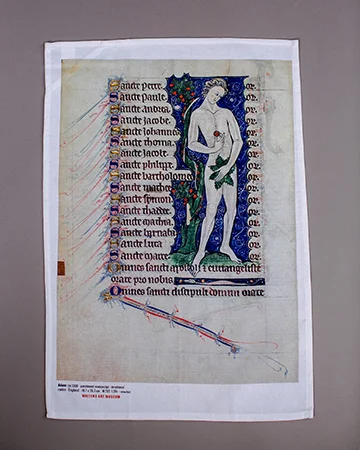 Sancte petre or.
Sancte paule or.
Sancte andrea or.
Sancte Jacobe or.
Sancte Johannes or.
Sancte thoma or.
Sancte Jacobe or.
Sancte philippe or.
Sancte bartholomee or.
Sancte mathee or.
Sancte symon or.
Sancte thadee or.
Sancte mathia or.
Sancte barnaba or.
Sancte luca or.
Sancte marce or.
Omnes sancti apostoli et euuangeliste
orate pro nobis
Omnes sancti discipuli domini orate
Adam
WALTERS ART MUSEUM